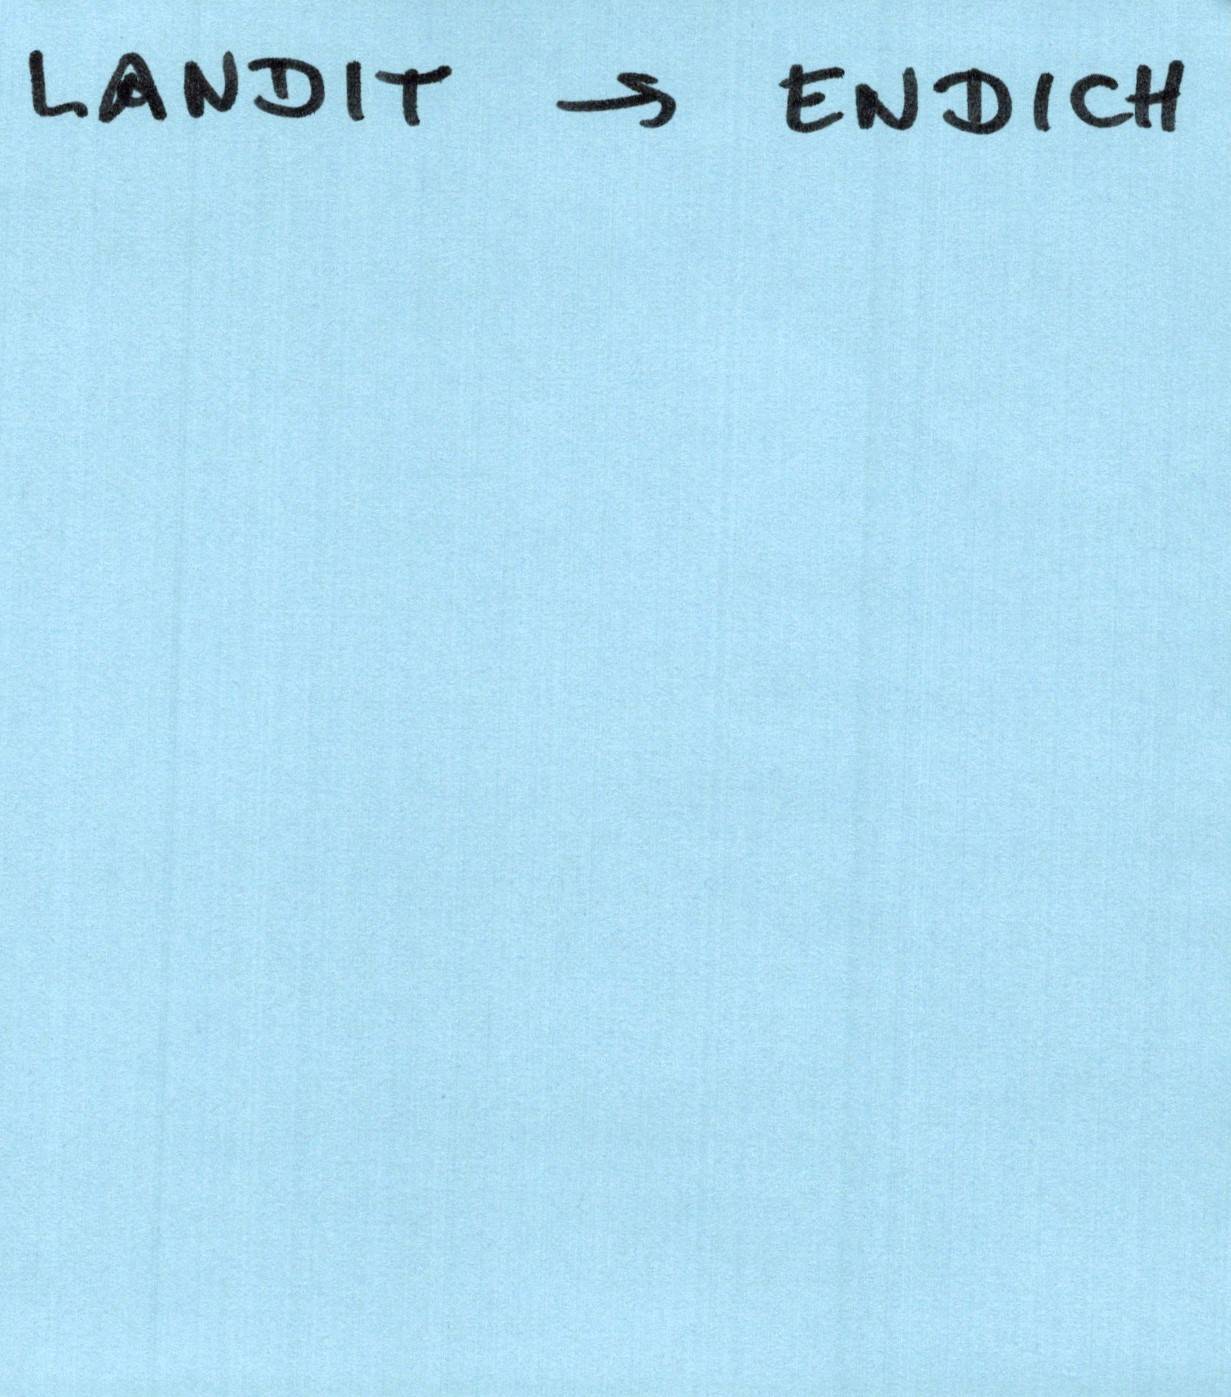 LANDIT → ENDICH